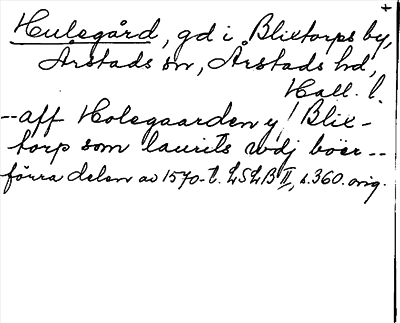 +
Hulegård, gd i Blixtorps by,
Årstads sn, Årstads hd,
Hall. l.
--aff Holegaarden y! Blix-
torp som laurits vdj böer--
förra delen av 1570-t. LSLB II, s.360. orig.